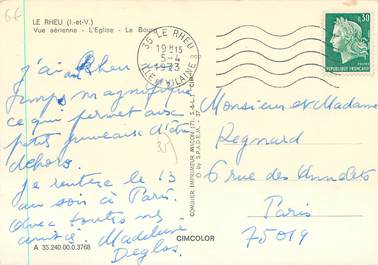 66
LE RHEU (I.-et-V.)
Vue aérienne - L'Eglise - Le Bourg
35 LE RHEU
19H15
5-4
1973
ILLE et VILAINE
0,50
REPUBLIQUE FRANCAISE
j'ai au Rheu un
temps magnifique
ce qui permet aux
petits d'être
dehors.
je rentre le 13
au soir à Paris.
avec toutes mes
amitiés. Madeleine
35
COMBIER IMPRIMEUR MACON (71. S.-&-L.)
© by S.P.A.D.E.M.
Monsieur et Madame
Regnard
6 rue des Annelets
Paris
75019
CIMCOLOR
A 35.240.00.0.3768